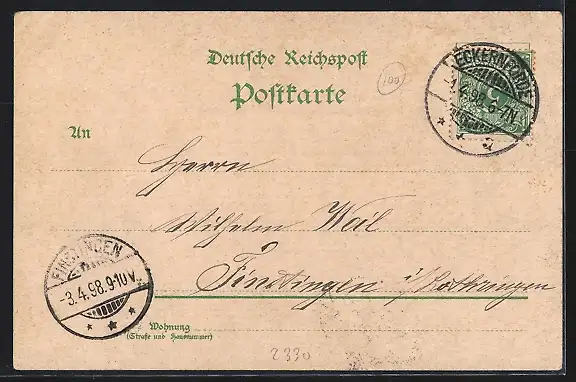 Deutsche Reichspost
Postkarte
100
ECKERNFÖRDE
1.4.98.6-7N.
An
Herrn
Wilhelm Weil
Finstingen i/Lothringen
FINSTINGEN
3.4.98.9-10V.
Wohnung
(Straße und Hausnummer)
2330